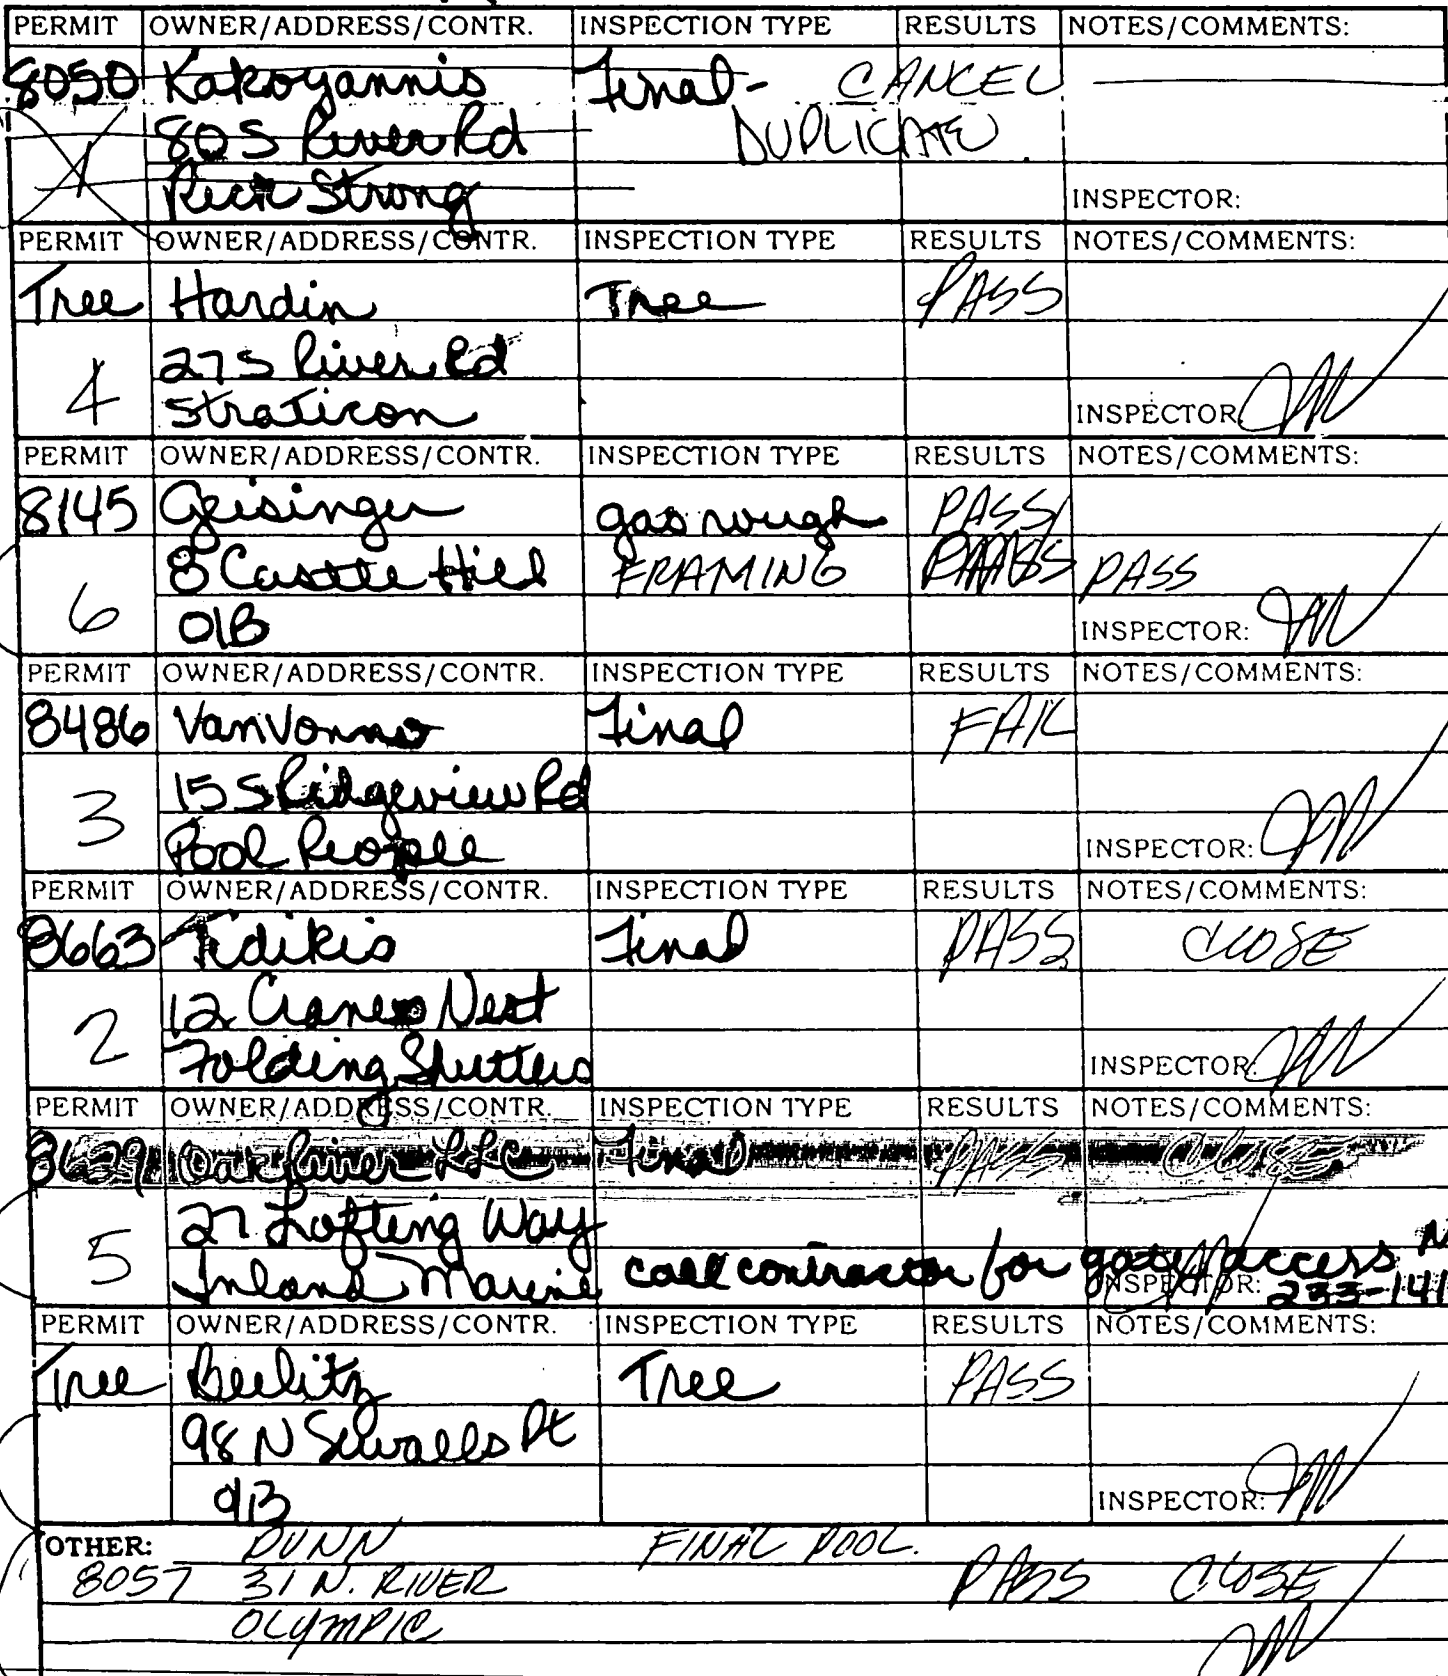 PERMIT OWNER/ADDRESS/CONTR. INSPECTION TYPE RESULTS NOTES/COMMENTS:
8050 Kakoyannis Final - CANCEL
80 S River Rd DUPLICATE
1 Rick Strong INSPECTOR:
PERMIT OWNER/ADDRESS/CONTR. INSPECTION TYPE RESULTS NOTES/COMMENTS:
Tree Hardin Tree PASS
27 S River Rd
4 Straticon INSPECTOR:
PERMIT OWNER/ADDRESS/CONTR. INSPECTION TYPE RESULTS NOTES/COMMENTS:
8145 Geisinger gas rough PASS
8 Castle Hill FRAMING PASS
6 O/B INSPECTOR:
PERMIT OWNER/ADDRESS/CONTR. INSPECTION TYPE RESULTS NOTES/COMMENTS:
8486 VanVonno Final FAIL
3 15 S Ridgeview Rd
Pool People INSPECTOR:
PERMIT OWNER/ADDRESS/CONTR. INSPECTION TYPE RESULTS NOTES/COMMENTS:
8663 Tidikis Final PASS CLOSE
2 12 Cranes Nest
Folding Shutters INSPECTOR:
PERMIT OWNER/ADDRESS/CONTR. INSPECTION TYPE RESULTS NOTES/COMMENTS:
8629 Oak River LLC Final PASS CLOSE
5 27 Lofting Way
Inland Marine call contractor for gate access
INSPECTOR: 233-141
PERMIT OWNER/ADDRESS/CONTR. INSPECTION TYPE RESULTS NOTES/COMMENTS:
Tree Beelitz Tree PASS
98 N Sewalls Pt
O/B INSPECTOR:
OTHER: DUNN FINAL POOL.
8057 31 N. RIVER PASS CLOSE
OLYMPIC